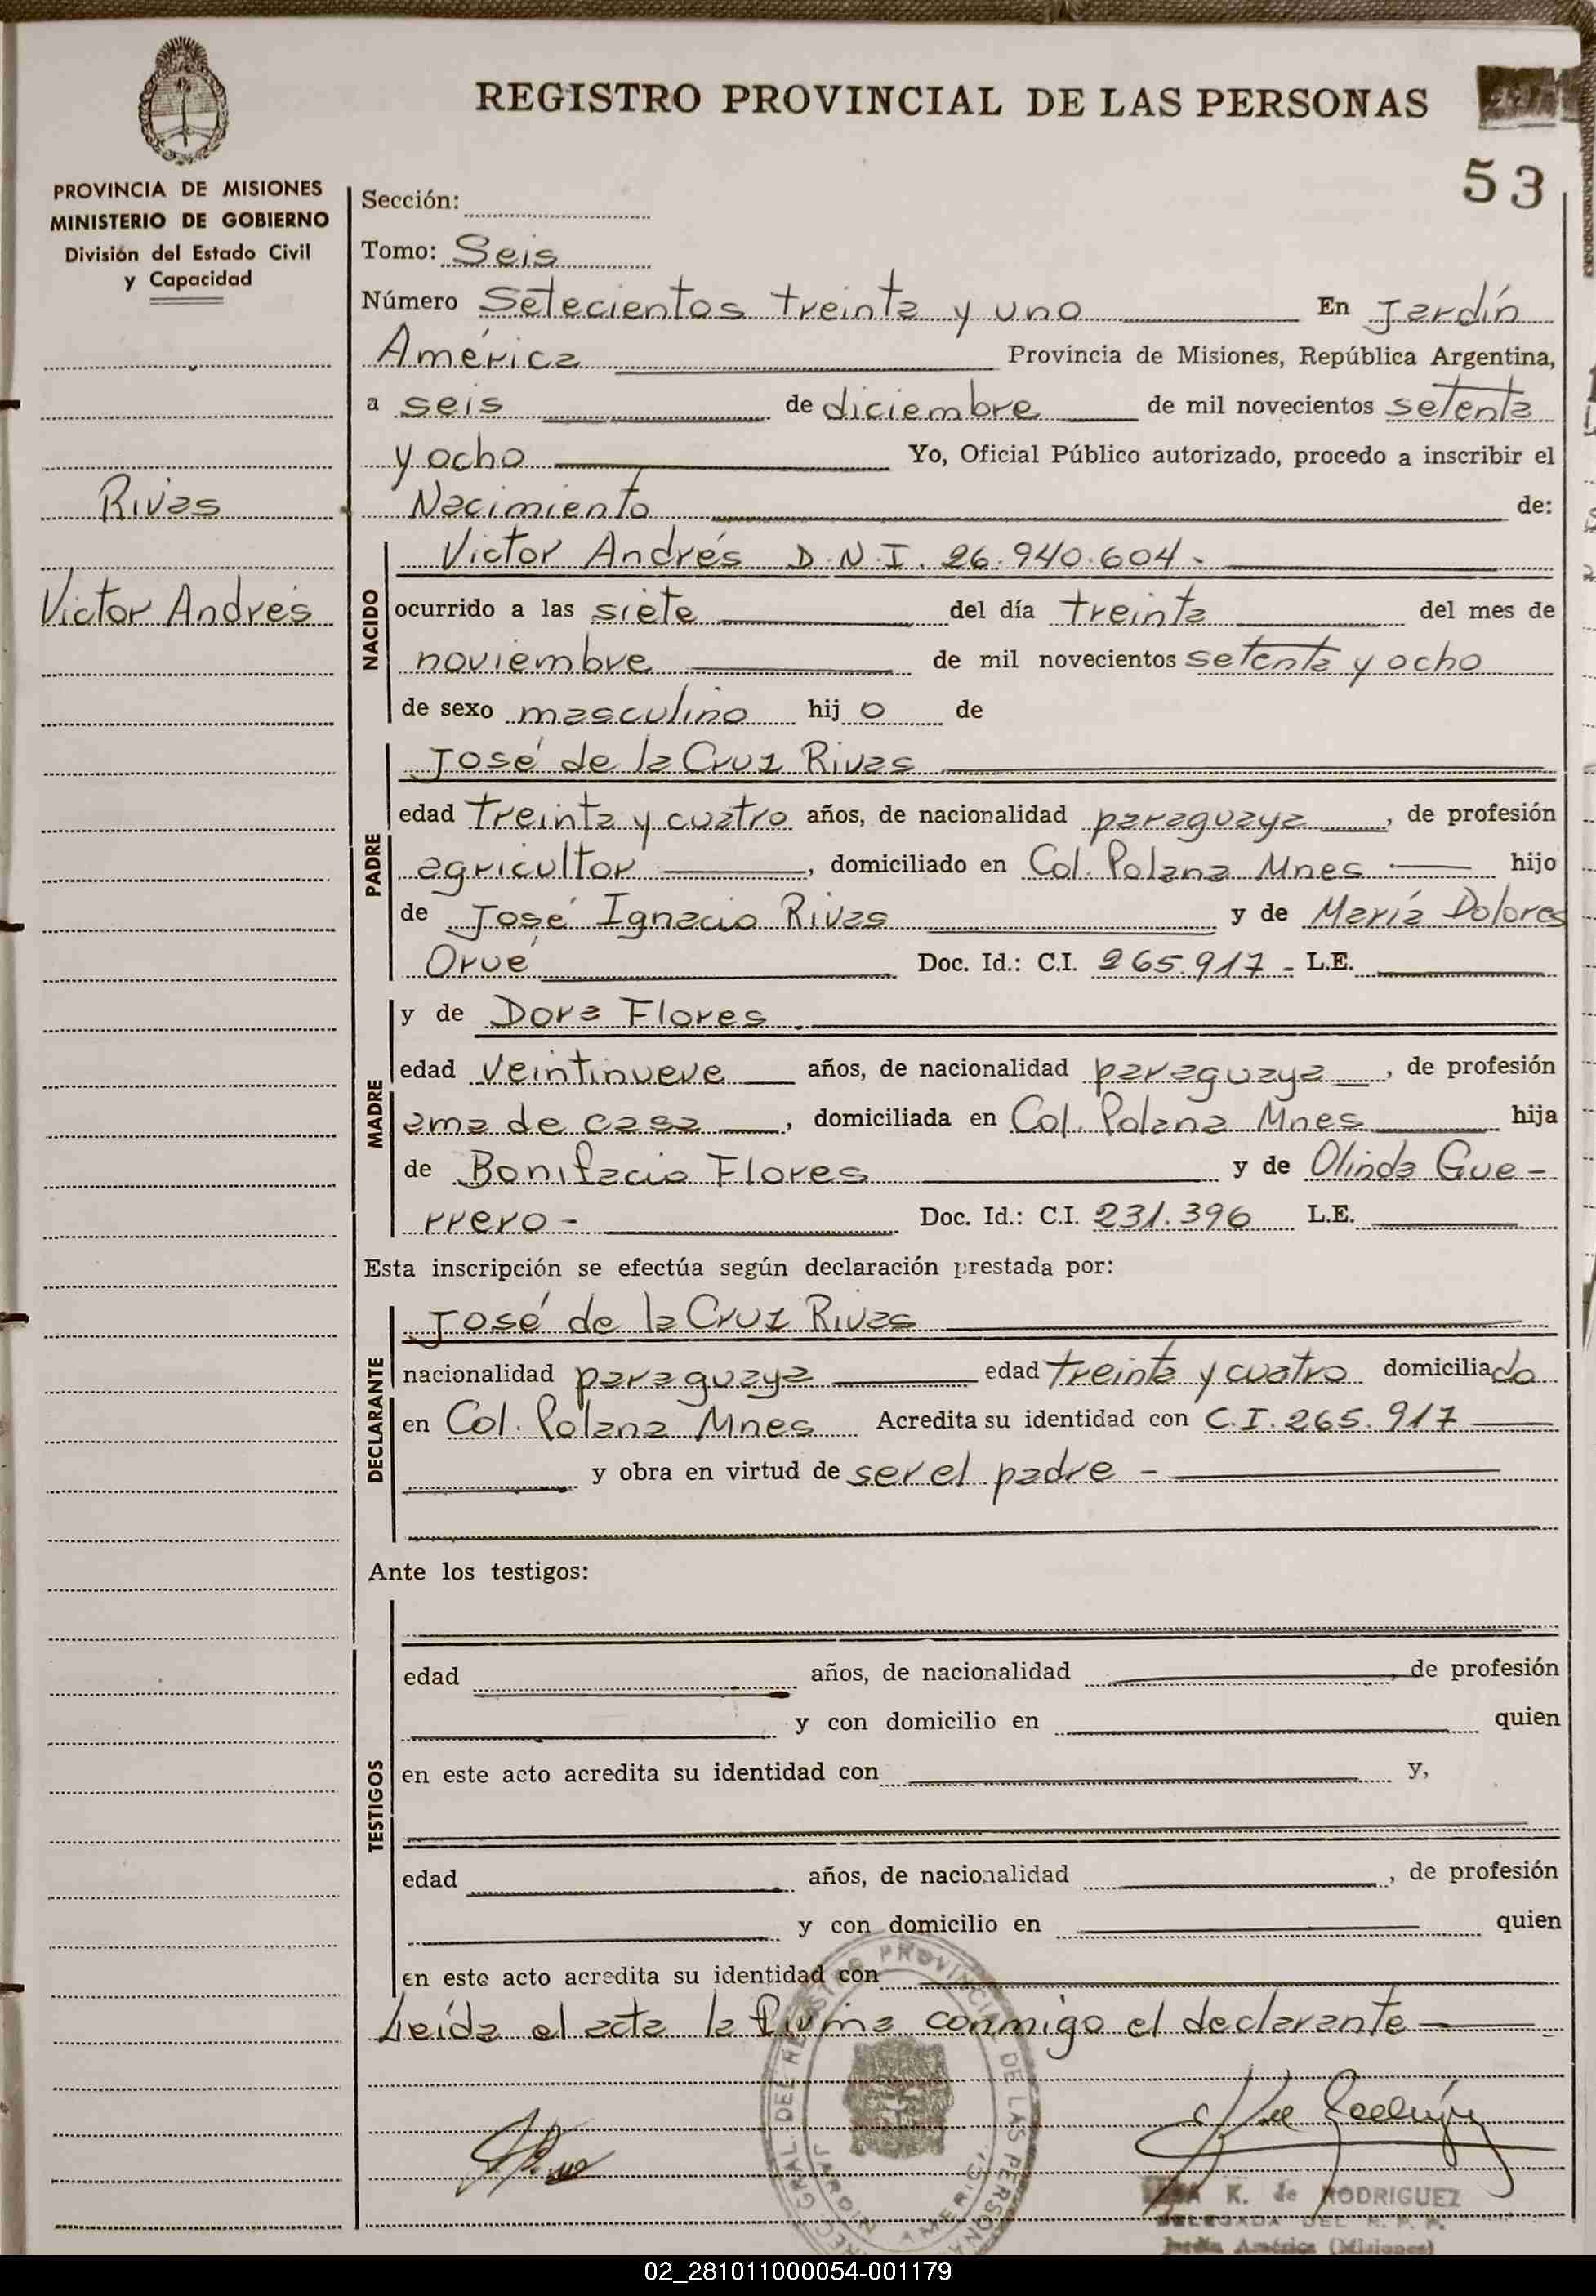 REGISTRO PROVINCIAL DE LAS PERSONAS
53
PROVINCIA DE MISIONES
MINISTERIO DE GOBIERNO
División del Estado Civil
y Capacidad
Rivas
Victor Andrés
Sección:
Tomo: Seis
Número Setecientos treinta y uno En Jardín
América Provincia de Misiones, República Argentina,
a seis de diciembre de mil novecientos setenta
y ocho Yo, Oficial Público autorizado, procedo a inscribir el
Nacimiento de:
NACIDO
Victor Andrés D.N.I. 26.940.604.-
ocurrido a las siete del día treinta del mes de
noviembre de mil novecientos setenta y ocho
de sexo masculino hij o de
PADRE
José de la Cruz Rivas
edad treinta y cuatro años, de nacionalidad paraguaya, de profesión
agricultor, domiciliado en Col. Polana Mnes hijo
de José Ignacio Rivas y de María Dolores
Orué Doc. Id.: C.I. 265.917 - L.E.
MADRE
y de Dora Flores
edad veintinueve años, de nacionalidad paraguaya, de profesión
ama de casa, domiciliada en Col. Polana Mnes hija
de Bonifacio Flores y de Olinda Gue-
rrero - Doc. Id.: C.I. 231.396 L.E.
Esta inscripción se efectúa según declaración prestada por:
DECLARANTE
José de la Cruz Rivas
nacionalidad paraguaya edad treinta y cuatro domiciliado
en Col. Polana Mnes Acredita su identidad con C.I. 265.917
y obra en virtud de ser el padre -
Ante los testigos:
TESTIGOS
edad años, de nacionalidad , de profesión
y con domicilio en quien
en este acto acredita su identidad con y,
edad años, de nacionalidad , de profesión
y con domicilio en quien
en este acto acredita su identidad con
Leída el acta la firma conmigo el declarante
GRAL. DEL REGISTRO PROVINCIAL DE LAS PERSONAS
JARDIN AMERICA
K. de RODRIGUEZ
DELEGADA DEL R. P. P.
Jardín América (Misiones)
02_281011000054-001179